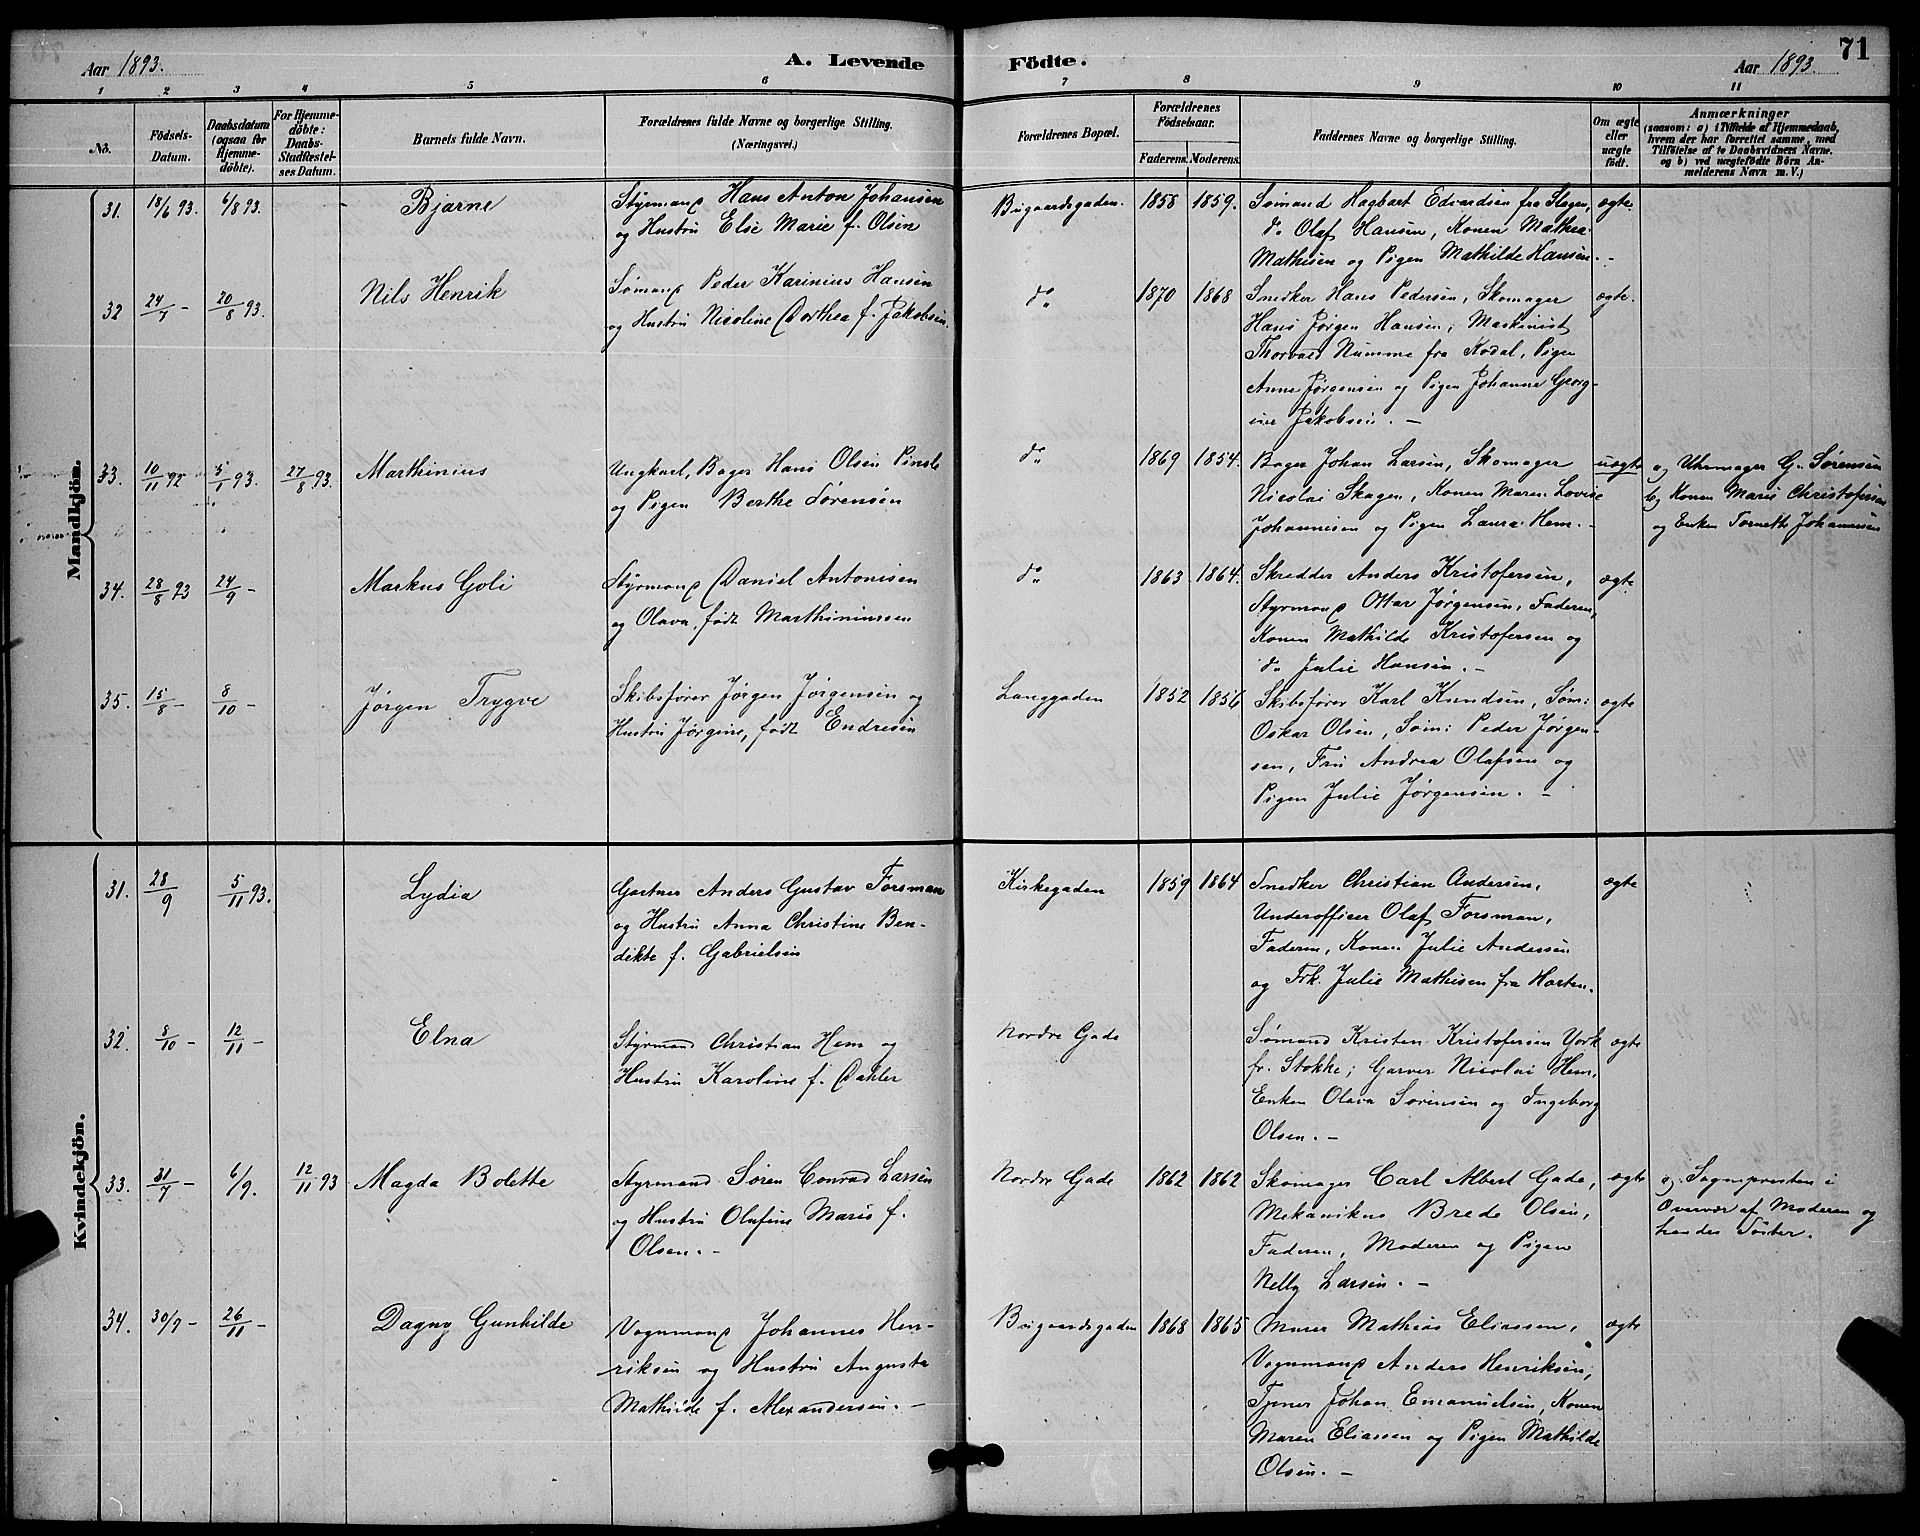 Aar 1893. A. Levende Födte. Aar 1893. 71
1 2 3 4 5 6 7 8 9 10 11
No. Födsels-Datum. Daabsdatum (ogsaa for Hjemme-döbte). For Hjemme-döbte: Daabs-Stadfæstel-ses Datum. Barnets fulde Navn. Forældrenes fulde Navne og borgerlige Stilling. (Næringsvei.) Forældrenes Bopæl. Forældrenes Födselsaar. Faderens. Moderens. Faddernes Navne og borgerlige Stilling. Om ægte eller uægte födt. Anmærkninger (saasom: a) i Tilfælde af Hjemmedaab, hvem der har forrettet samme, med Tilföielse af to Daabsvidners Navne, og b) ved uægtefödte Börn An-melderens Navn m. V.)
Mandkjön.
31. 18/6 93. 6/8 93. Bjarne Styrmand Hans Anton Johansen Bugaardsgaden. 1858 1859. Sømand Hagbart Edvardsen fra Slagen, ægte.
og Hustru Else Marie f. Olsen do Olaf Hansen, Konen Mathea
Mathisen og Pigen Mathilde Hansen. -
32 24/7 - 20/8 93. Nils Henrik Sømand Peder Karinius Hansen do 1870 1868 Snedker Hans Pedersen, Skomager ægte.
og Hustru Nicoline Dorthea f. Jakobsen. Hans Jørgen Hansen, Maskinist
Thorvald Numme fra Kodal, Pigen
Anne Jørgensen og Pigen Johanne Georg-
ine Jakobsen. -
33. 10/11 92 5/1 93. 27/8 93. Marthinius Ungkarl, Bager Hans Olsen Pinsle do 1869 1854. Bager Johan Larsen, Skomager uægte a) Uhrmager G. Sørensen
og Pigen Berthe Sørensen Nicolai Skagen, Konen Maren Lovise b) Konen Maris Christofersen
Johannisen og Pigen Laura Hem. - og Enken Tornette Johannesen
34. 28/8 93 24/9 - Markus Goli Styrmand Daniel Antonisen do 1863 1864. Skrædder Anders Kristofersen, ægte.
og Olava, født Marthiniussen Styrmand Ottar Jørgensen, Faderen,
Konen Mathilde Kristofersen og
do Julie Hansen. -
35. 15/8 - 8/10 - Jørgen Trygve Skibsfører Jørgen Jørgensen og Langgaden 1852 1856 Skibsfører Karl Knudsen, Søm: ægte
Hustru Jørgine, født Endresen Oskar Olsen, Søm: Peder Jørgen-
sen, Fru Andrea Olafsen og
Pigen Julie Jørgensen. -
Kvindekjön.
31. 28/9 5/11 93. Lydia Gartner Anders Gustav Forsman Kirkegaden 1859 1864 Snedker Christian Andersen, ægte
og Hustru Anna Christine Ben- Underofficer Olaf Forsman,
dikte f. Gabrielsen Faderen, Konen Julie Andersen
og Frk. Julie Mathisen fra Horten.
32. 8/10 - 12/11 - Elna Styrmand Christian Hem og Nordre Gade Sømand Kristen Kristofersen York ægte
Hustru Karoline f. Dahler fr. Stokke; Garver Nicolai Hem,
Enken Olava Sørensen og Ingeborg
Olsen. -
33. 31/7 - 6/9. 12/11 93 Magda Bolette Styrmand Søren Conrad Larsen Nordre Gade 1862 1862 Skomager Carl Albert Gade, ægte a). Sognepresten i
og Hustru Olufine Maris f. Mekanikus Brede Olsen, Overvær af Moderen og
Olsen. - Faderen, Moderen og Pigen hendes Søster.
Nelly Larsen. -
34. 30/9 - 26/11 - Dagny Gunhilde Vognmand Johannes Hen- Bugaardsgaden 1868 1865 Murer Mathias Eliassen, ægte
riksen og Hustru Augusta Vognmand Anders Henriksen,
Mathilde f. Alexandersen. - Tjener Johan Emanuelsen, Konen
Maren Eliassen og Pigen Mathilde
Olsen. -